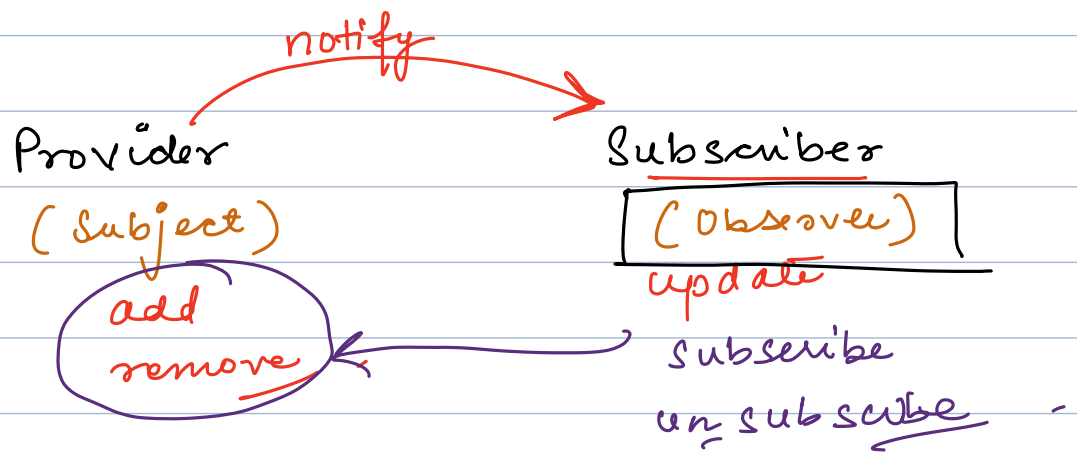 notify
Provider
Subscriber
(Subject)
(Observer)
add
update
remove
subscribe
unsubscribe